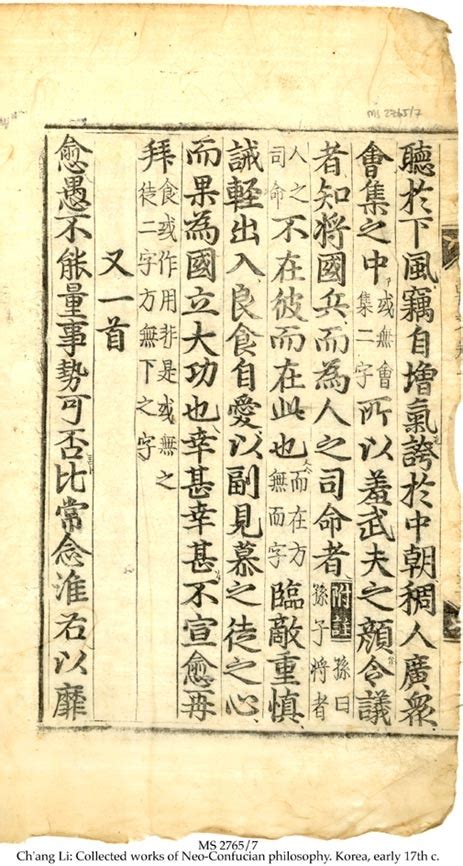 MS 2765/7
聽於下風竊自增氣誇於中朝稠人廣衆
會集之中或無會集二字所以羞武夫之顏令議
者知將國兵而為人之司命者附註孫曰孫子將者
人之司命不在彼而在此也而在方無而字臨敵重慎
誡輕出入良食自愛以副見慕之徒之心
而果為國立大功也幸甚幸甚不宣愈再
拜食或作用非是或無之徒二字方無下之字
又一首
愈愚不能量事勢可否比常念淮右以靡
MS 2765/7
Ch'ang Li: Collected works of Neo-Confucian philosophy. Korea, early 17th c.